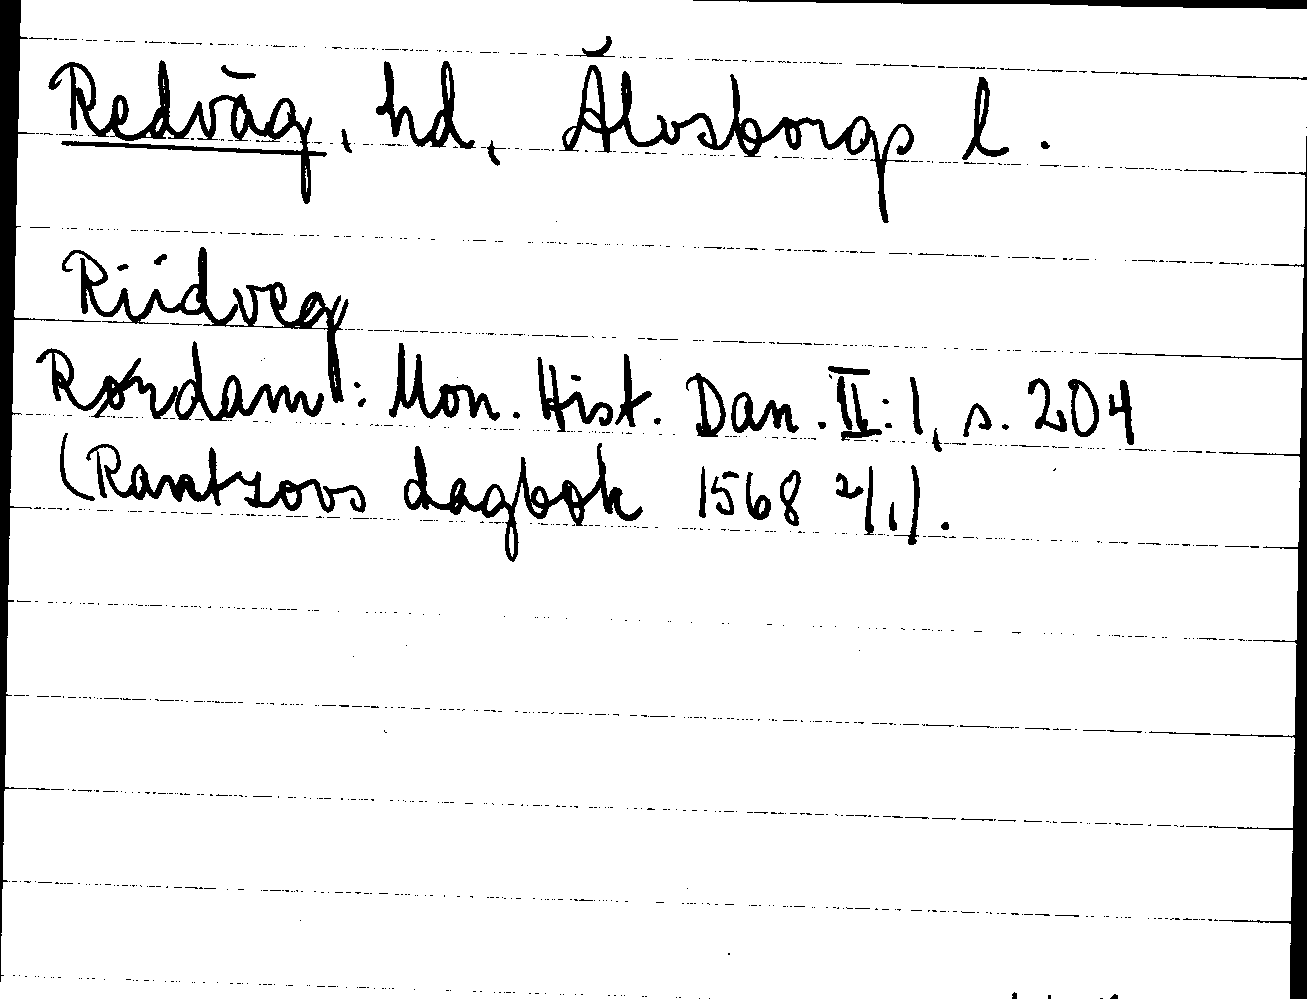 Redväg, hd, Älvsborgs l.
Riidveg
Rørdam: Mon. Hist. Dan. II:1, s. 204
(Rantzovs dagbok 1568 2/1).